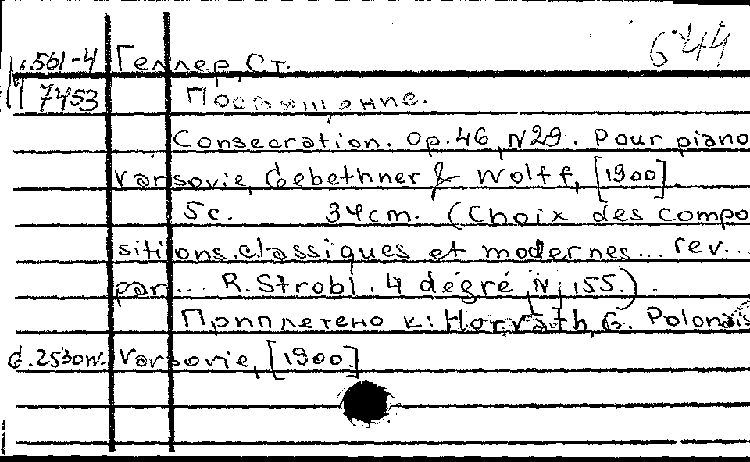 644
561-4 Геллер, Ст.
7453 Посвящение.
Consecration. Op. 46, N29. Pour piano
Varsovie, Gebethner & Wolff, [1900].
5c. 34cm. (Choix des compo
sitions classiques et modernes... rev...
par... R. Strobl. 4 degré, N 155.).
Приплетено к: Horvath, G. Polonais
d.2530н. Varsovie, [1900]